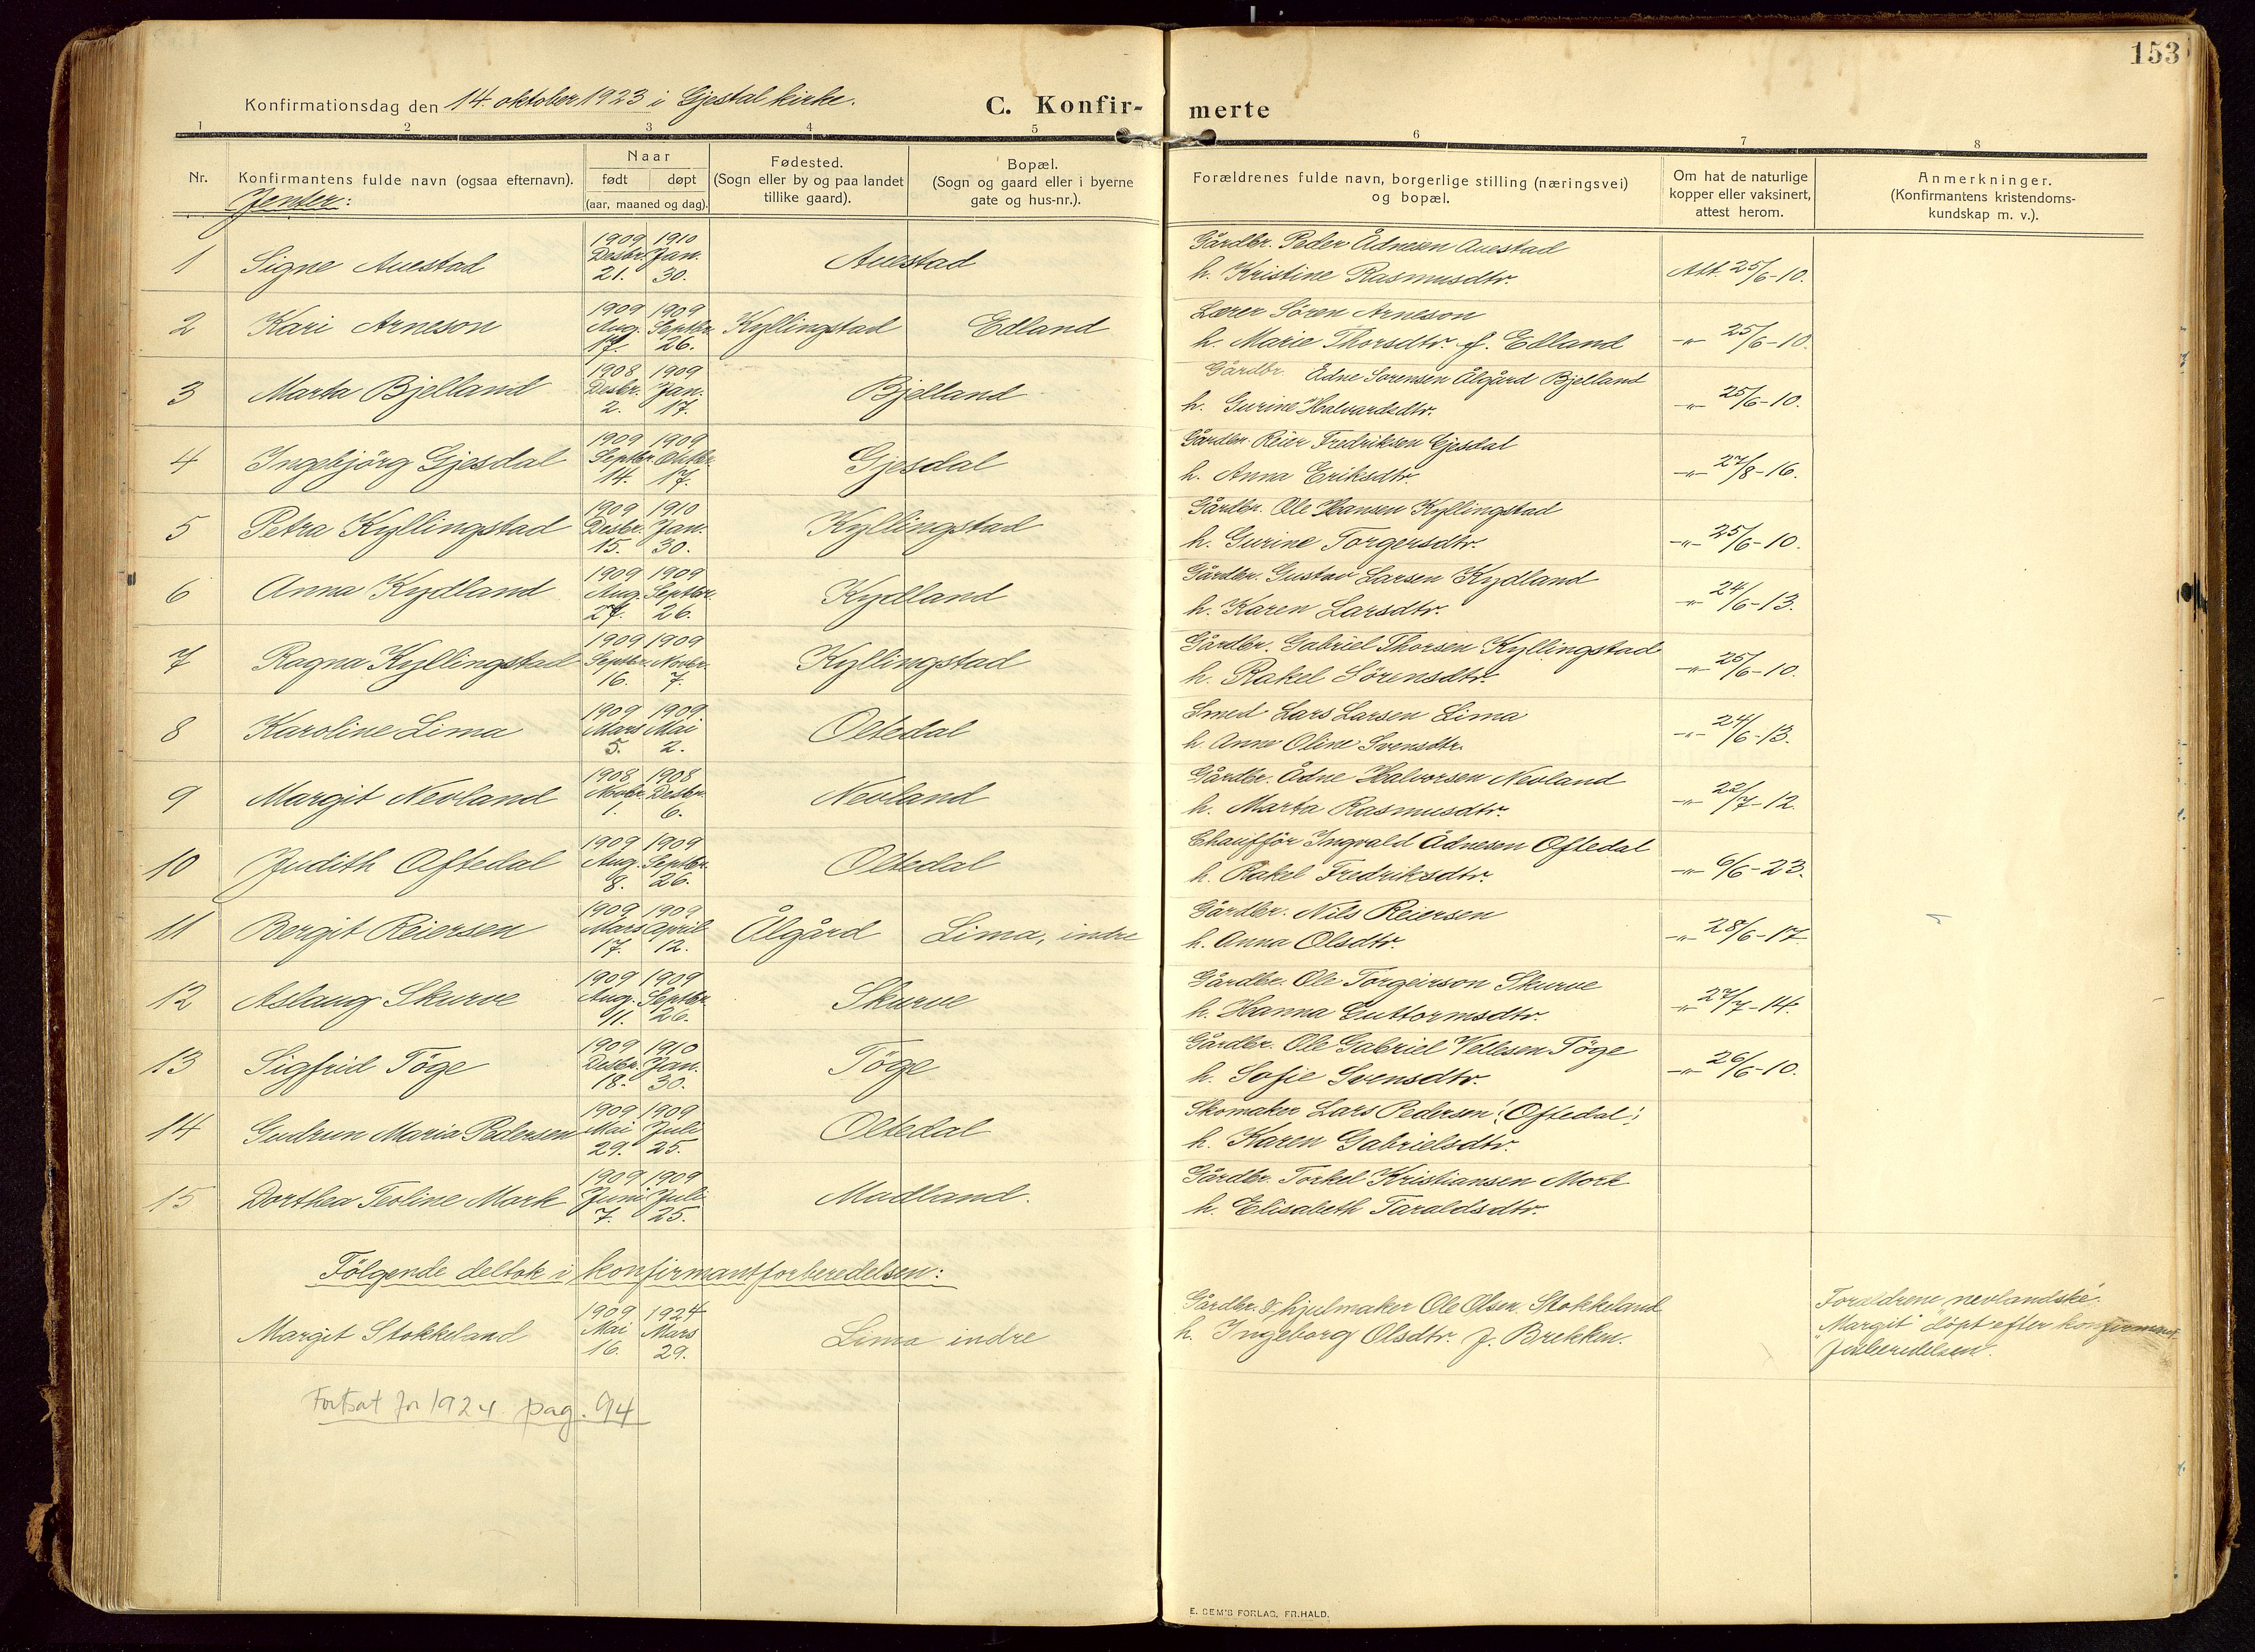 153
Konfirmationsdag den 14. oktober 1923 i Gjestal kirke.
C. Konfir- merte
1 2 3 4 5 6 7 8
Nr.
Konfirmantens fulde navn (ogsaa efternavn).
Naar
født døpt
(aar, maaned og dag).
Fødested.
(Sogn eller by og paa landet
tillike gaard).
Bopæl.
(Sogn og gaard eller i byerne
gate og hus-nr.).
Forældrenes fulde navn, borgerlige stilling (næringsvei)
og bopæl.
Om hat de naturlige
kopper eller vaksinert,
attest herom.
Anmerkninger.
(Konfirmantens kristendoms-
kundskap m. v.).
Jenter:
1909 1910 Gårdbr. Peder Ådnesen Auestad
1 Signe Auestad Desbr. Jan. Auestad
21. 30. h. Kristine Rasmusdtr. Att. 25/6-10.
1909 1909 Lærer Sören Arneson
2 Kari Arneson Aug. Septbr. Kyllingstad Edland
17. 26. h. Marie Thorsdtr. f. Edland -"- 25/6-10.
1908 1909 Gårdbr. Ådne Sorensen Ålgård Bjelland
3 Marta Bjelland Desbr. Jan. Bjelland
2. 17. h. Gurine Halvardsdtr. -"- 25/6-10.
1909 1909 Gårdbr. Reier Fredriksen Gjesdal
4 Ingebjörg Gjesdal Septbr. Oktbr. Gjesdal
14. 17. h. Anna Eriksdtr. -"- 27/8-16.
1909 1910 Gårdbr. Ole Hansen Kyllingstad
5 Petra Kyllingstad Desbr. Jan. Kyllingstad
15. 30. h. Gurine Torgersdtr. -"- 25/6-10.
1909 1909 Gårdbr. Gustav Larsen Kydland
6 Anna Kydland Aug. Septbr. Kydland
27. 26. h. Karen Larsdtr. -"- 24/6-13.
1909 1909 Gårdbr. Gabriel Thorsen Kyllingstad
7 Ragna Kyllingstad Septbr. Novbr. Kyllingstad
16. 7. h. Rakel Sörensdtr. -"- 25/6-10.
1909 1909 Smed Lars Larsen Lima
8 Karoline Lima Mars Mai Oltedal
5. 2. h. Anne Oline Svensdtr. -"- 24/6-13.
1908 1908 Gårdbr. Ådne Halvorsen Nevland
9 Margit Nevland Novbr. Desbr. Nevland
1. 6. h. Marta Rasmusdtr. -"- 22/7-12.
1909 1909 Chaufför Ingvald Ådnesen Oftedal
10 Judith Oftedal Aug. Septbr. Oltedal
8. 26. h. Rakel Fredriksdtr. -"- 6/6-23.
1909 1909 Gårdbr. Nils Reiersen
11 Bergit Reiersen Mars April Ålgård Lima, indre
17. 12. h. Anna Olsdtr. -"- 28/6-17.
1909 1909 Gårdbr. Ole Torgeirson Skurve
12 Aslaug Skurve Aug. Septbr. Skurve
11. 26. h. Hanna Guttormsdtr. -"- 27/7-14.
1909 1910 Gårdbr. Ole Gabriel Vellesen Töge
13 Sigfrid Töge Desbr. Jan. Töge
18. 30. h. Sofie Svensdtr. -"- 26/6-10.
1909 1909 Skomaker Lars Pedersen (Oftedal)
14 Gudrun Maria Pedersen Mai Juli Oltedal
29. 25. h. Karen Gabrielsdtr.
1909 1909 Gårdbr. Torkel Kristiansen Mork
15 Dorthea Teoline Mork Juni Juli Madland.
7. 25. h. Elisabeth Taraldsdtr.
Fölgende deltok i konfirmantforberedelsen:
1909 1924 Gårdbr. & hjulmaker Ole Olsen Stokkeland
Margit Stokkeland Mai Mars Lima indre
16. 29. h. Ingeborg Olsdtr. f. Brekken.
Foreldrene nevlandske.
Margit döpt efter konfirmant-
forberedelsen.
Fortsat for 1924 pag. 94
E. SEM'S FORLAG, FR.HALD.